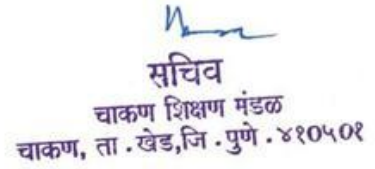 सचिव
चाकण शिक्षण मंडळ
चाकण, ता . खेड,जि . पुणे . ४१०५०१